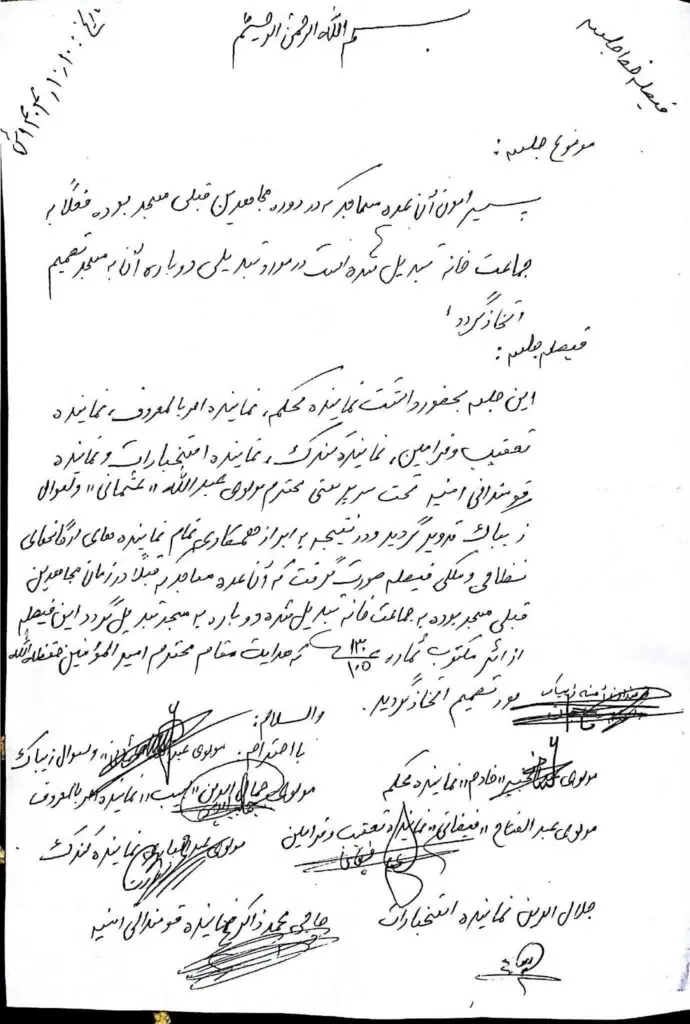 بسم الله الرحمن الرحیم
فیصله خط جلسه
موضوع جلسه:
پیرامون آن عده مساجد که در دوره مجاهدین قبلی مسجد بوده فعلاً به
جماعت خانه تبدیل شده است در مورد تبدیلی دوباره آن به مسجد تصمیم
اتخاذ گردد
فیصله جلسه:
این جلسه بحضورداشت نماینده محکم، نماینده امر بالمعروف، نماینده
تعقیب و فرامین، نماینده گمرک، نماینده استخبارات و نماینده
قومندانی امنیه تحت سرپرستی محترم مولوی عبدالله "عثمانی" ولسوال
زیباک تدویر گردید و در نتیجه به ابراز همکاری تمام نماینده های ارگانهای
نظامی و ملکی فیصله صورت گرفت که آن عده مساجد که قبلاً در زمان مجاهدین
قبلی مسجد بوده به جماعت خانه تبدیل شده دوباره به مسجد تبدیل گردد این فیصله
از اثر مکتوب شماره ۱۳۰/۱۰۵ که هدایت مقام محترم امیرالمؤمنین حفظه الله
بود تصمیم اتخاذ گردید.
والسلام:
با احترام: مولوی ولسوال زیباک
مولوی "خادم" نماینده محکم
مولوی نماینده امر بالمعروف
مولوی عبدالفتاح "فیضانی" نماینده تعقیب و فرامین
مولوی نماینده گمرک
جلال الدین نماینده استخبارات
حاجی محمد ذاکر نماینده قومندانی امنیه